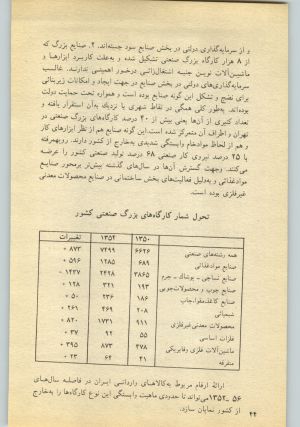 و از سرمایه‌گذاری دولتی در بخش صنایع سود جسته‌اند. ۲. صنایع بزرگ که
از ۸ هزار کارگاه بزرگ صنعتی تشکیل شده و به‌علت کاربرد ابزارها و
ماشین‌آلات نوین جنبه اشتغال‌زائی درخور اهمیتی ندارند. غالب
سرمایه‌گذاری‌های دولتی در بخش صنایع در جهت ایجاد و امکانات زیربنائی
برای نضج و تشکل این گونه صنایع بوده است و همواره تحت حمایت دولت
بوده‌اند. به‌طور کلی همگی در نقاط شهری یا نزدیک به‌آن استقرار یافته و
تعداد کثیری از آن‌ها یعنی بیش از ۴۰ درصد کارگاه‌های بزرگ صنعتی در
تهران و اطراف آن متمرکز شده است. این گونه صنایع هم از نظر ابزارهای کار
و هم از لحاظ موادخام وابستگی شدیدی به‌خارج از کشور دارند. رویهمرفته
با ۲۵ درصد نیروی کار صنعتی ۶۸ درصد تولید صنعتی کشور را عرضه
می‌کنند. وجهت گسترش آن‌ها در سال‌های گذشته بیش‌تر برمحور صنایع
موادغذائی و به‌دلیل فعالیت‌های بخش ساختمانی در صنایع محصولات معدنی
غیرفلزی بوده است.
تحول شمار کارگاه‌های بزرگ صنعتی کشور
۱۳۵۰ ۱۳۵۴ تغییرات
همه رشته‌های صنعتی ۶۶۲۶ ۷۴۹۹ + ۸۷۳
صنایع موادغذائی ۶۸۹ ۱۲۸۵ + ۵۹۶
صنایع نساجی ـ پوشاک ـ چرم ۳۸۶۵ ۲۴۲۸ - ۱۴۳۷
صنایع چوب و محصولات‌چوبی ۱۹۳ ۳۲۱ + ۱۲۸
صنایع کاغذ،مقوا،چاپ ۱۸۶ ۲۳۶ + ۵۰
شیمیائی ۲۰۸ ۴۶۹ + ۲۶۱
محصولات معدنی‌غیرفلزی ۹۱۱ ۱۷۳۱ + ۸۲۰
فلزات اساسی ۵۵ ۹۲ + ۳۷
ماشین‌آلات فلزی وفابریکی ۴۷۸ ۸۷۳ + ۳۹۵
متفرقه ۴۱ ۶۴ + ۲۳
ارائهٔ ارقام مربوط به‌کالاهای وارداتی ایران در فاصله سال‌های
۵۶ ـ ۱۳۵۲ می‌تواند تا حدودی ماهیت وابستگی این نوع کارگاه‌ها را به‌خارج
از کشور نمایان سازد.
۴۴